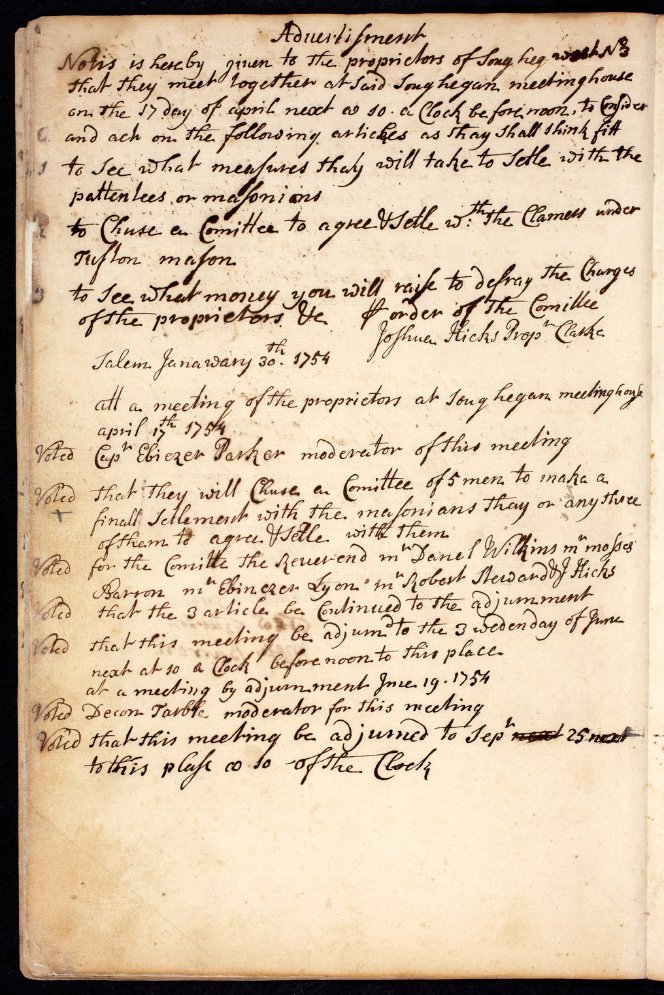 Advertisment
Notis is hereby given to the proprietors of Souheg west No 3
that they meet together at Said Souhegan meetinghouse
on the 17 day of april next at 10 a Clock before noon, to Consider
and act on the following articles as thay Shall think fitt
1 to See what measures thay will take to Setle with the
pattentees or masonians
2 to Chuse a Comittee to agree & Setle wth the Clamers under
Tufton mason
3 to See what money you will raise to defray the Charges
of the proprietors &c pr order of the Comittee
Joshua Hicks Propr Clarke
Salem Janawary 30th 1754
att a meeting of the proprietors at Souhegan meetinghouse
april 17th 1754
Voted Capt Ebiezer Parker moderator of this meeting
Voted that they will Chuse a Comittee of 5 men to make a
finall Setlement with the masonians thay or any three
of them to agree & Setle with them
Voted for the Comitte the Reverend mr Danel Wilkins mr mosses
Barron mr Ebinezer Lyon mr Robert Steward & J Hicks
Voted that the 3 article be Continued to the adjurnment
Voted that this meeting be adjurnd to the 3 wedenday of June
next at 10 a Clock before noon to this place
at a meeting by adjurnment June 19. 1754
Voted Decon Tarble moderator for this meeting
Voted that this meeting be adjurned to Sepr next 25 next
to this plase at 10 of the Clock